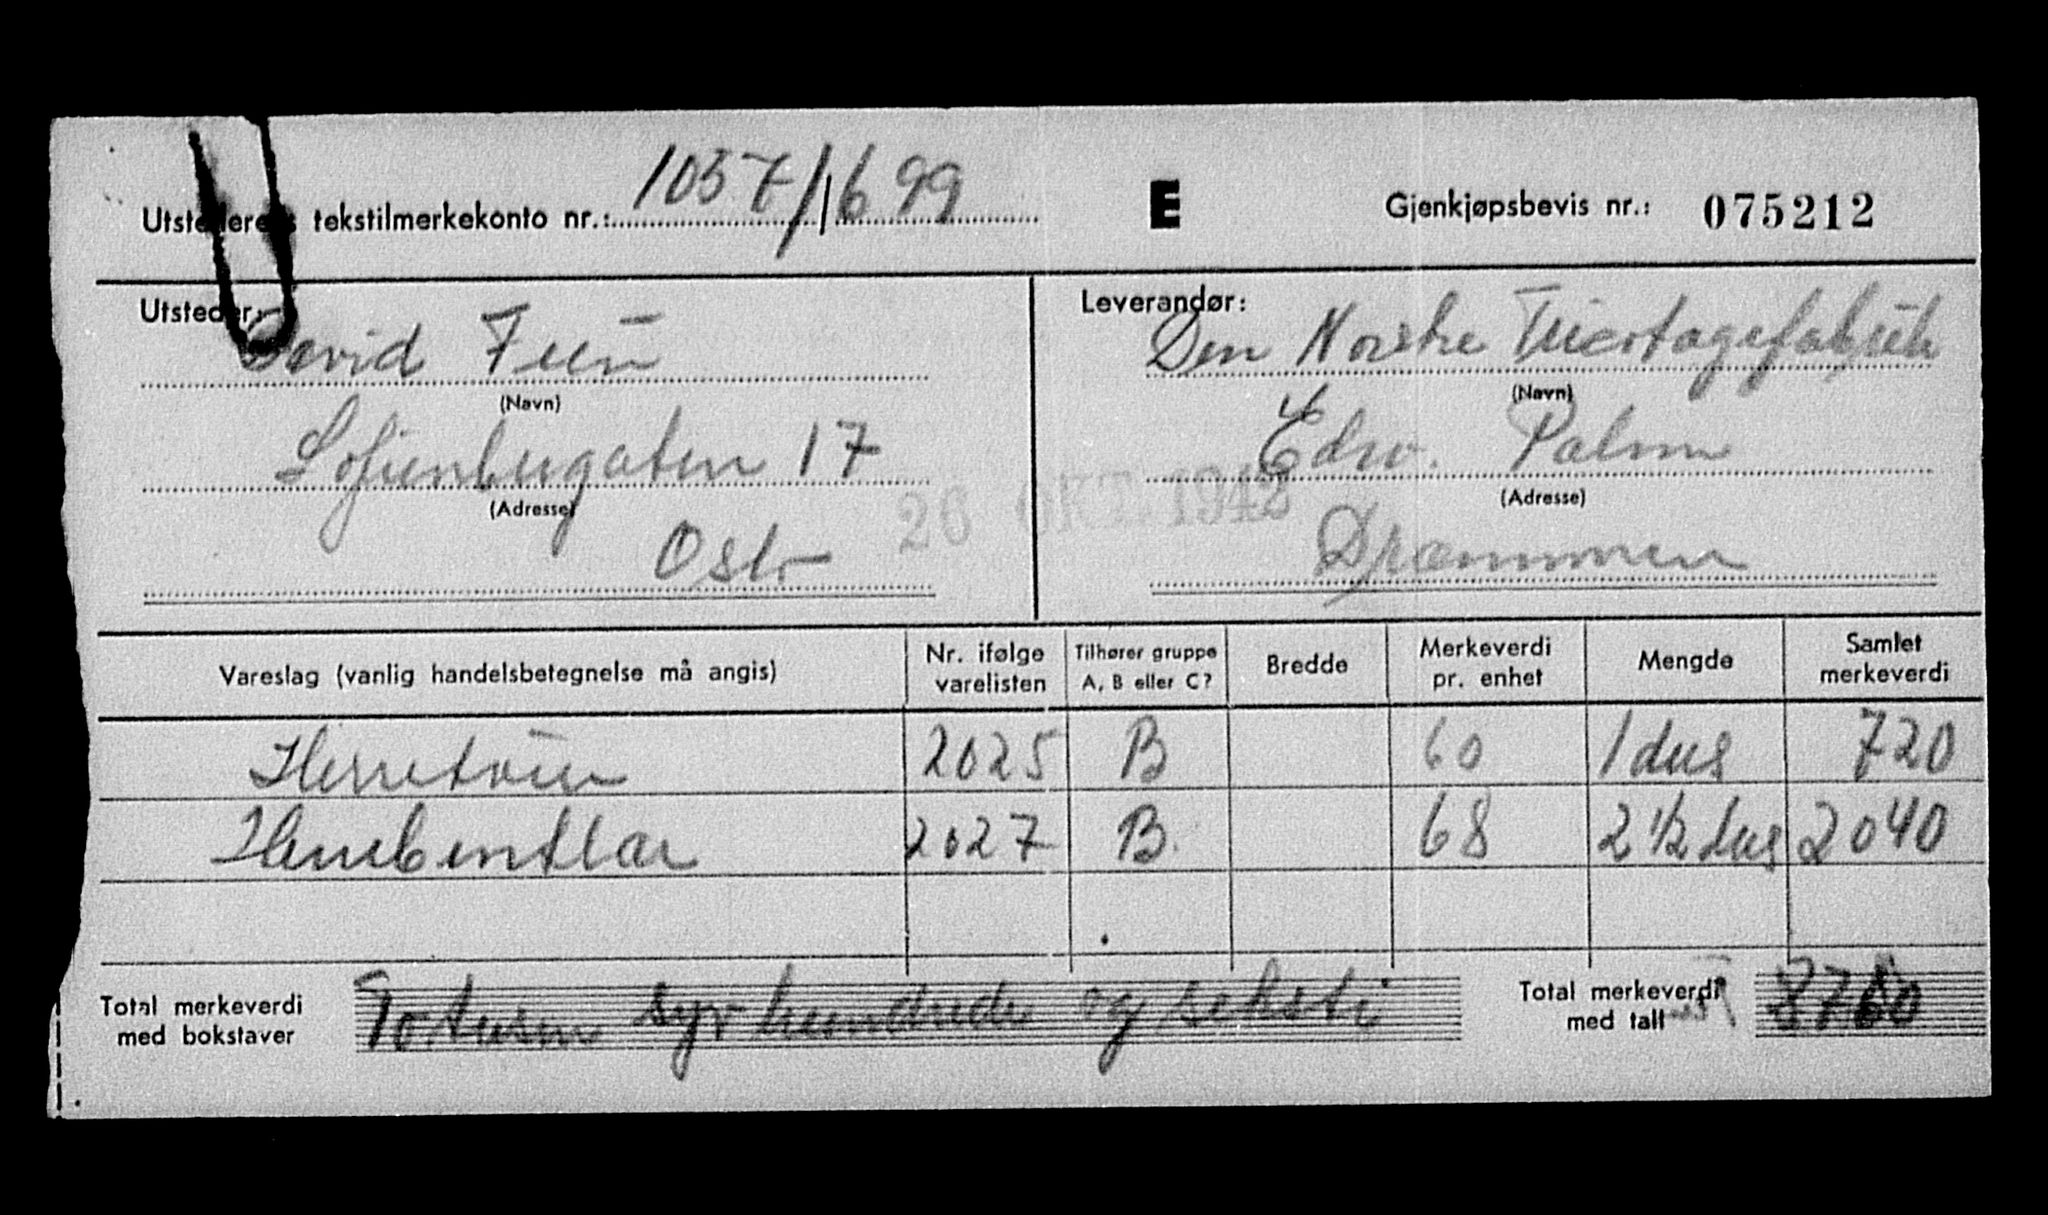 Utstederens tekstilmerkekonto nr.: 1057/1699
E
Gjenkjøpsbevis nr.: 075212
Utsteder:
David
(Navn)
Sofienberggaten 17
(Adresse)
Oslo
26 OKT. 1942
Leverandør:
Den Norske Tricotagefabrik
(Navn)
Edw. Palm
(Adresse)
Drammen
Vareslag (vanlig handelsbetegnelse må angis) Nr. ifølge varelisten Tilhører gruppe A, B eller C? Bredde Merkeverdi pr. enhet Mengde Samlet merkeverdi
2025 B 60 1 dus 720
2027 B. 68 2 1/2 dus 2040
Total merkeverdi med bokstaver
Totusen syv hundrede og seksti
Total merkeverdi med tall